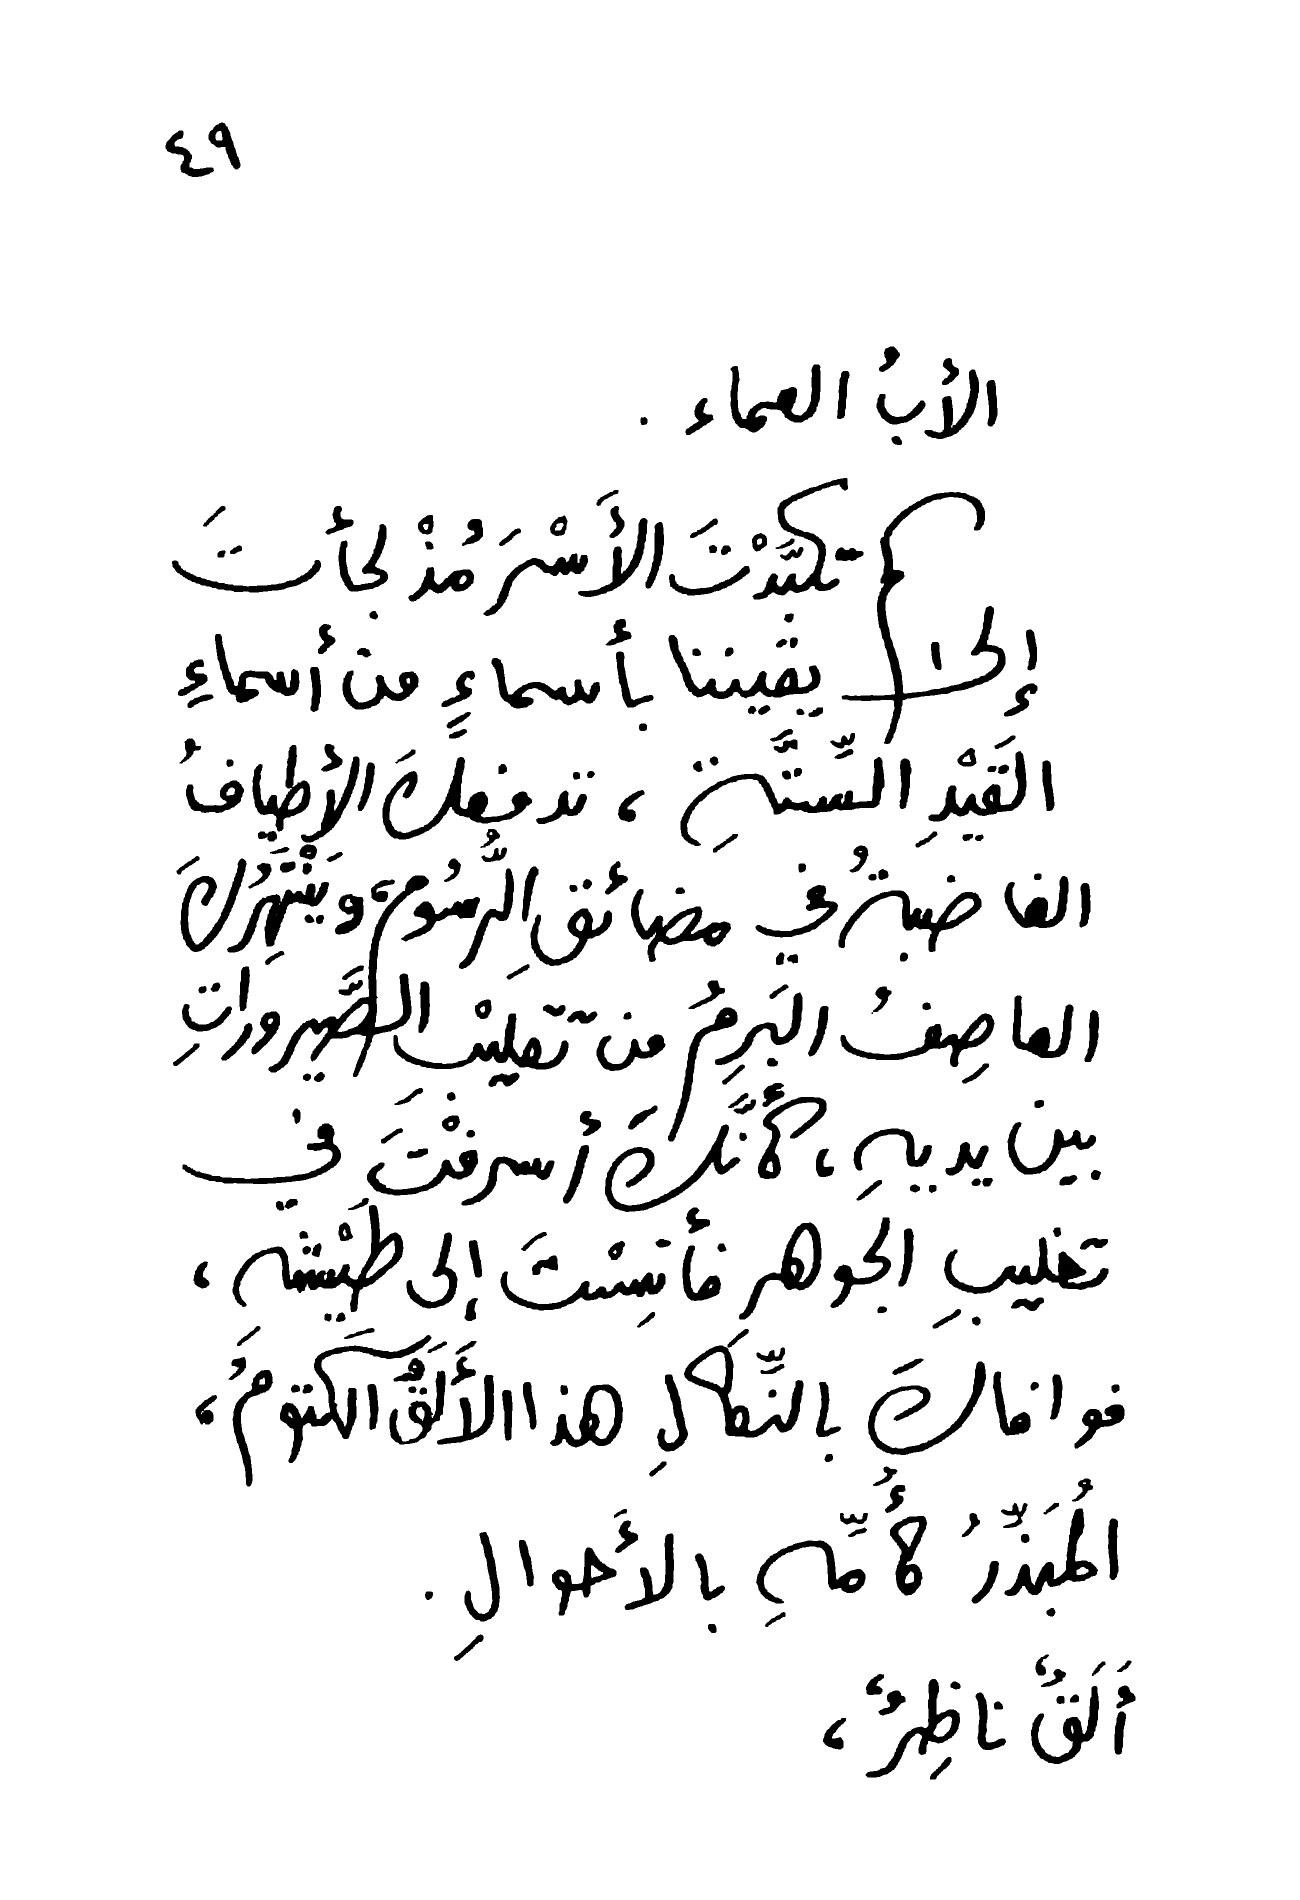 ٤٩
الأبُ العماء .
كم تكبَّدْتَ الأَسْرَ مُذْ لجأتَ
إلى يقيننا بأسماءٍ من أسماءِ
القَيْدِ السِّتَّةِ ، تدفعكَ الأطيافُ
الغاضبةُ في مضائقِ الرُّسُومِ، ويَنْتَهِرُكَ
العاصِفُ البَرِمُ من تقليْبِ الصَّيروراتِ
بين يديهِ ، كأنَّكَ أسرفْتَ في
تغليبِ الجوهر فأنِسْتَ إلى طَيْشِهِ ،
فوافاكَ بالنَّكالِ هذا الأَلَقُ الكَتومُ ،
المُبَذِّرُ كأُمِّهِ بالأَحوالِ .
أَلَقٌ ناظِرٌ ،